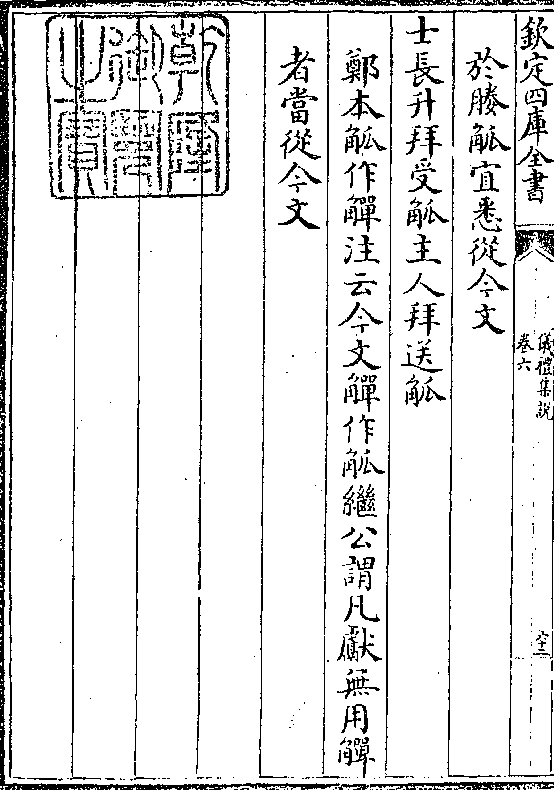 欽定四庫全書
儀禮集說
卷六
六十二
於媵觚宜悉從今文
士長升拜受觚主人拜送觚
鄭本觚作觶注云今文觶作觚繼公謂凡獻無用觶
者當從今文
乾隆御覽之寶